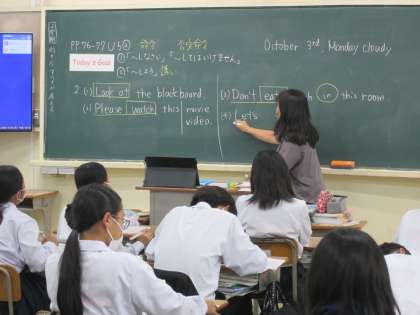 PP.76-77 U5②
October 3rd, Monday cloudy
Today's Goal
①「~しなさい」「~してはいけません」
②「~しましょう」
2. (1) Look at the blackboard.
(2) Please watch this movie
video.
(3) Don't eat in this room.
(4) Let's